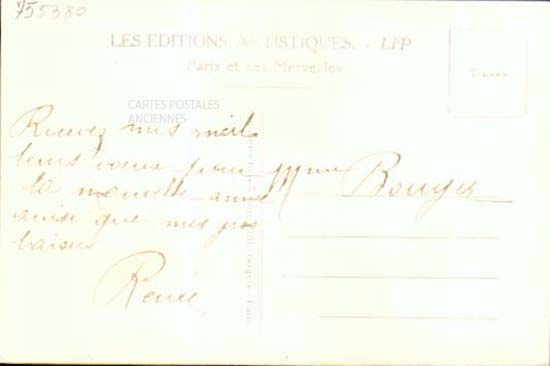 755380
LES EDITIONS ARTISTIQUES. - LIP
Paris et ses Merveilles
CARTES POSTALES
ANCIENNES
Timbre
Recevez mes meil
leurs voeux pour
la nouvelle année
ainsi que mes gros
baisers
Renée
Mme Bouyer